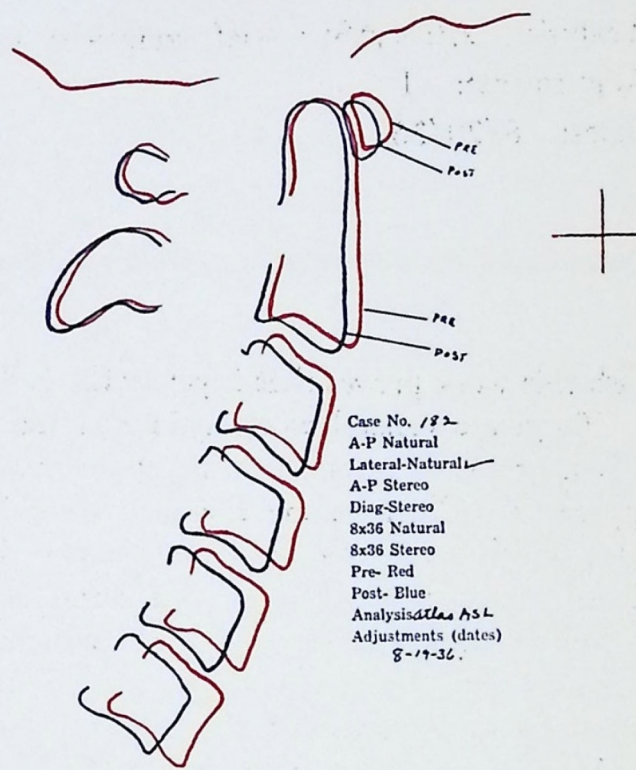 PRE
POST
PRE
POST
Case No. 182
A-P Natural
Lateral-Natural ✓
A-P Stereo
Diag-Stereo
8x36 Natural
8x36 Stereo
Pre- Red
Post- Blue
Analysis Atlas ASL
Adjustments (dates)
8-19-36.